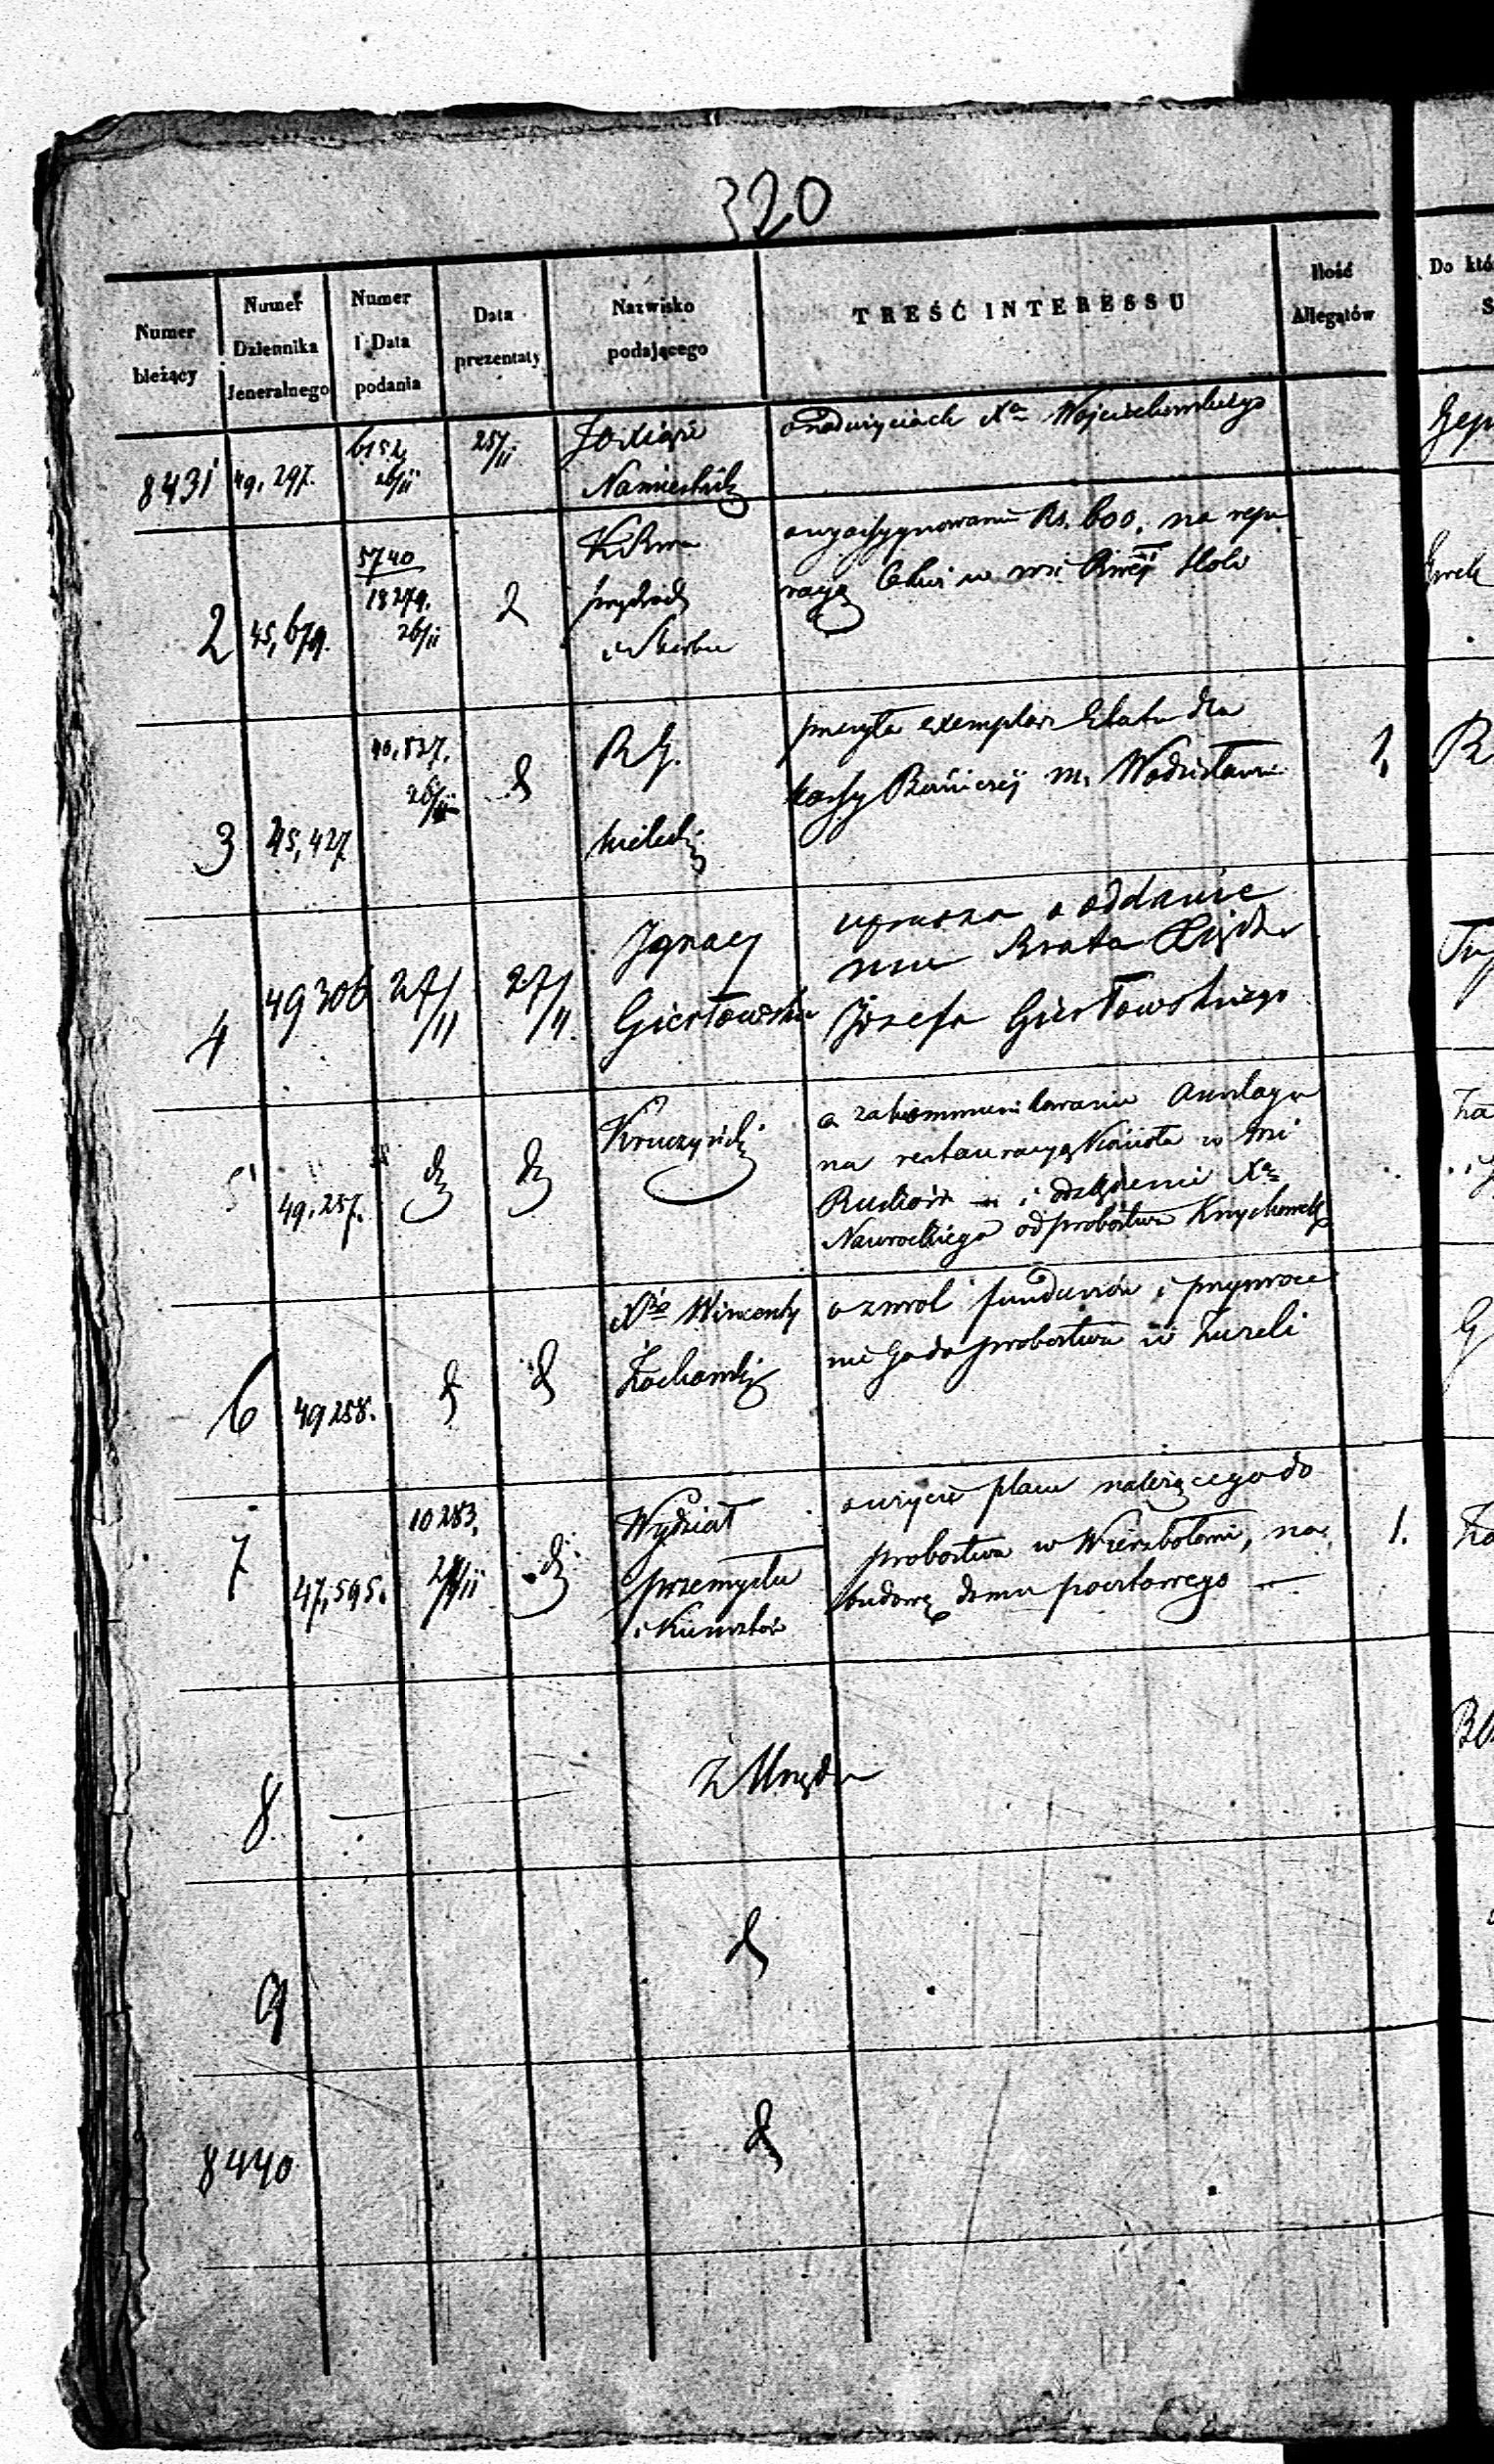 320
Numer bieżący
Numer Dziennika Jeneralnego
Numer i Data podania
Data prezentaty
Nazwisko podającego
TREŚĆ INTERESSU
Ilość Allegatów
Do któ
8431 49,297. 6152 26/11 25/11 JO Xiąże Namiestnik
o nadużyciach Xa Wojciechowskiego
2 45,679. 5740 18279. 26/11 KR
przych
i Skarbu
o wyassygnowanie Rs. 600. na repa
racyą we wsi Woli
3 45,427 40,537. 26/11 RG.
Kielecki
przesyła exemplarz Etatu dla
kassy Bożniczej m. Wodzisławia
1,
4 49306 27/11 27/11 Ignacy
Gierłowski
uprasza o oddanie
mu Brata Księdza
Józefa Gierłowskiego
5 49,257. Kruczyński
o zakommunikowanie Anszlagu
na restauracyą Kościoła w wsi
i oddaleniu Xa
Nawrockiego od probostwa
6 49258. X Wincenty
Żochowski
o zwrot funduszów i przywróce
nie Go do probostwa w Kureli
7 47,595. 10283. Wydział
przemysłu
i Kunsztów
o użycie placu należącego do
probostwa w Wierzbołowie, na
budowę domu pocztowego —
1.
8 z Urzędu
9
8440